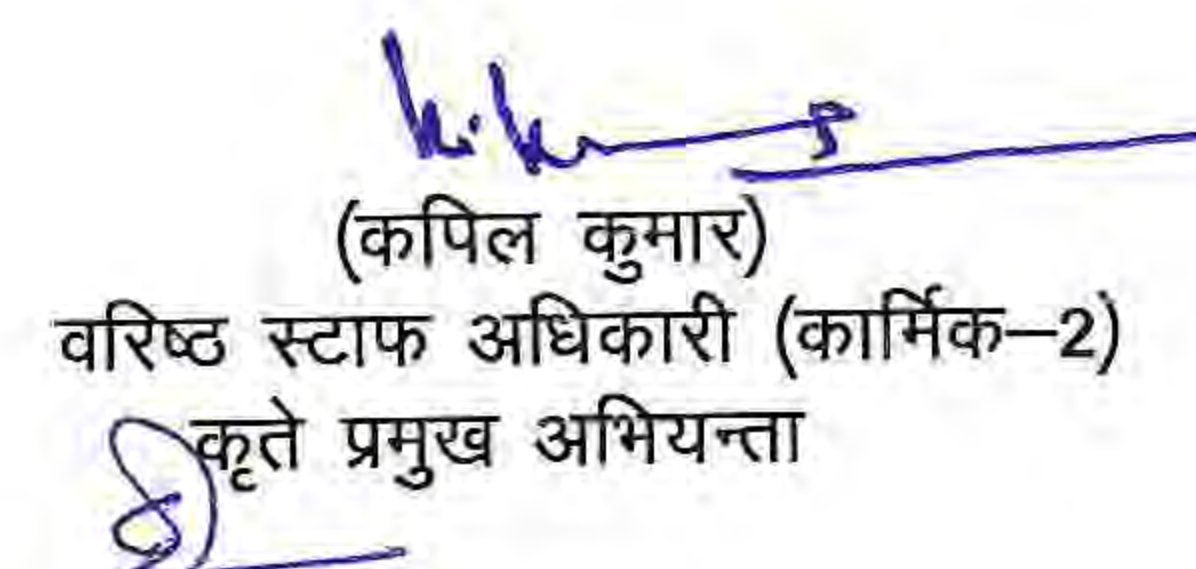 (कपिल कुमार)
वरिष्ठ स्टाफ अधिकारी (कार्मिक–2)
कृते प्रमुख अभियन्ता